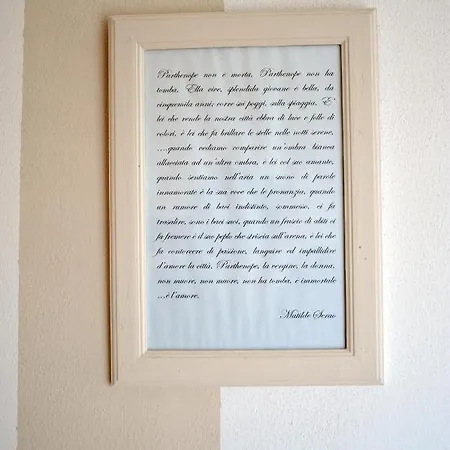 Parthenope non è morta, Parthenope non ha
tomba. Ella vive, splendida giovane e bella, da
cinquemila anni; corre sui poggi, sulla spiaggia. E'
lei che rende la nostra città ebbra di luce e folle di
colori, è lei che fa brillare le stelle nelle notti serene,
....quando vediamo comparire un'ombra bianca
allacciata ad un'altra ombra, è lei col suo amante,
quando sentiamo nell'aria un suono di parole
innamorate è la sua voce che le pronunzia, quando
un rumore di baci indistinto, sommesso, ci fa
trasalire, sono i baci suoi, quando un fruscio di abiti ci
fa fremere è il suo peplo che striscia sull'arena, è lei che
fa contorcere di passione, languire ed impallidire
d'amore la città. Parthenope, la vergine, la donna,
non muore, non muore, non ha tomba, è immortale
...è l'amore.
Matilde Serao